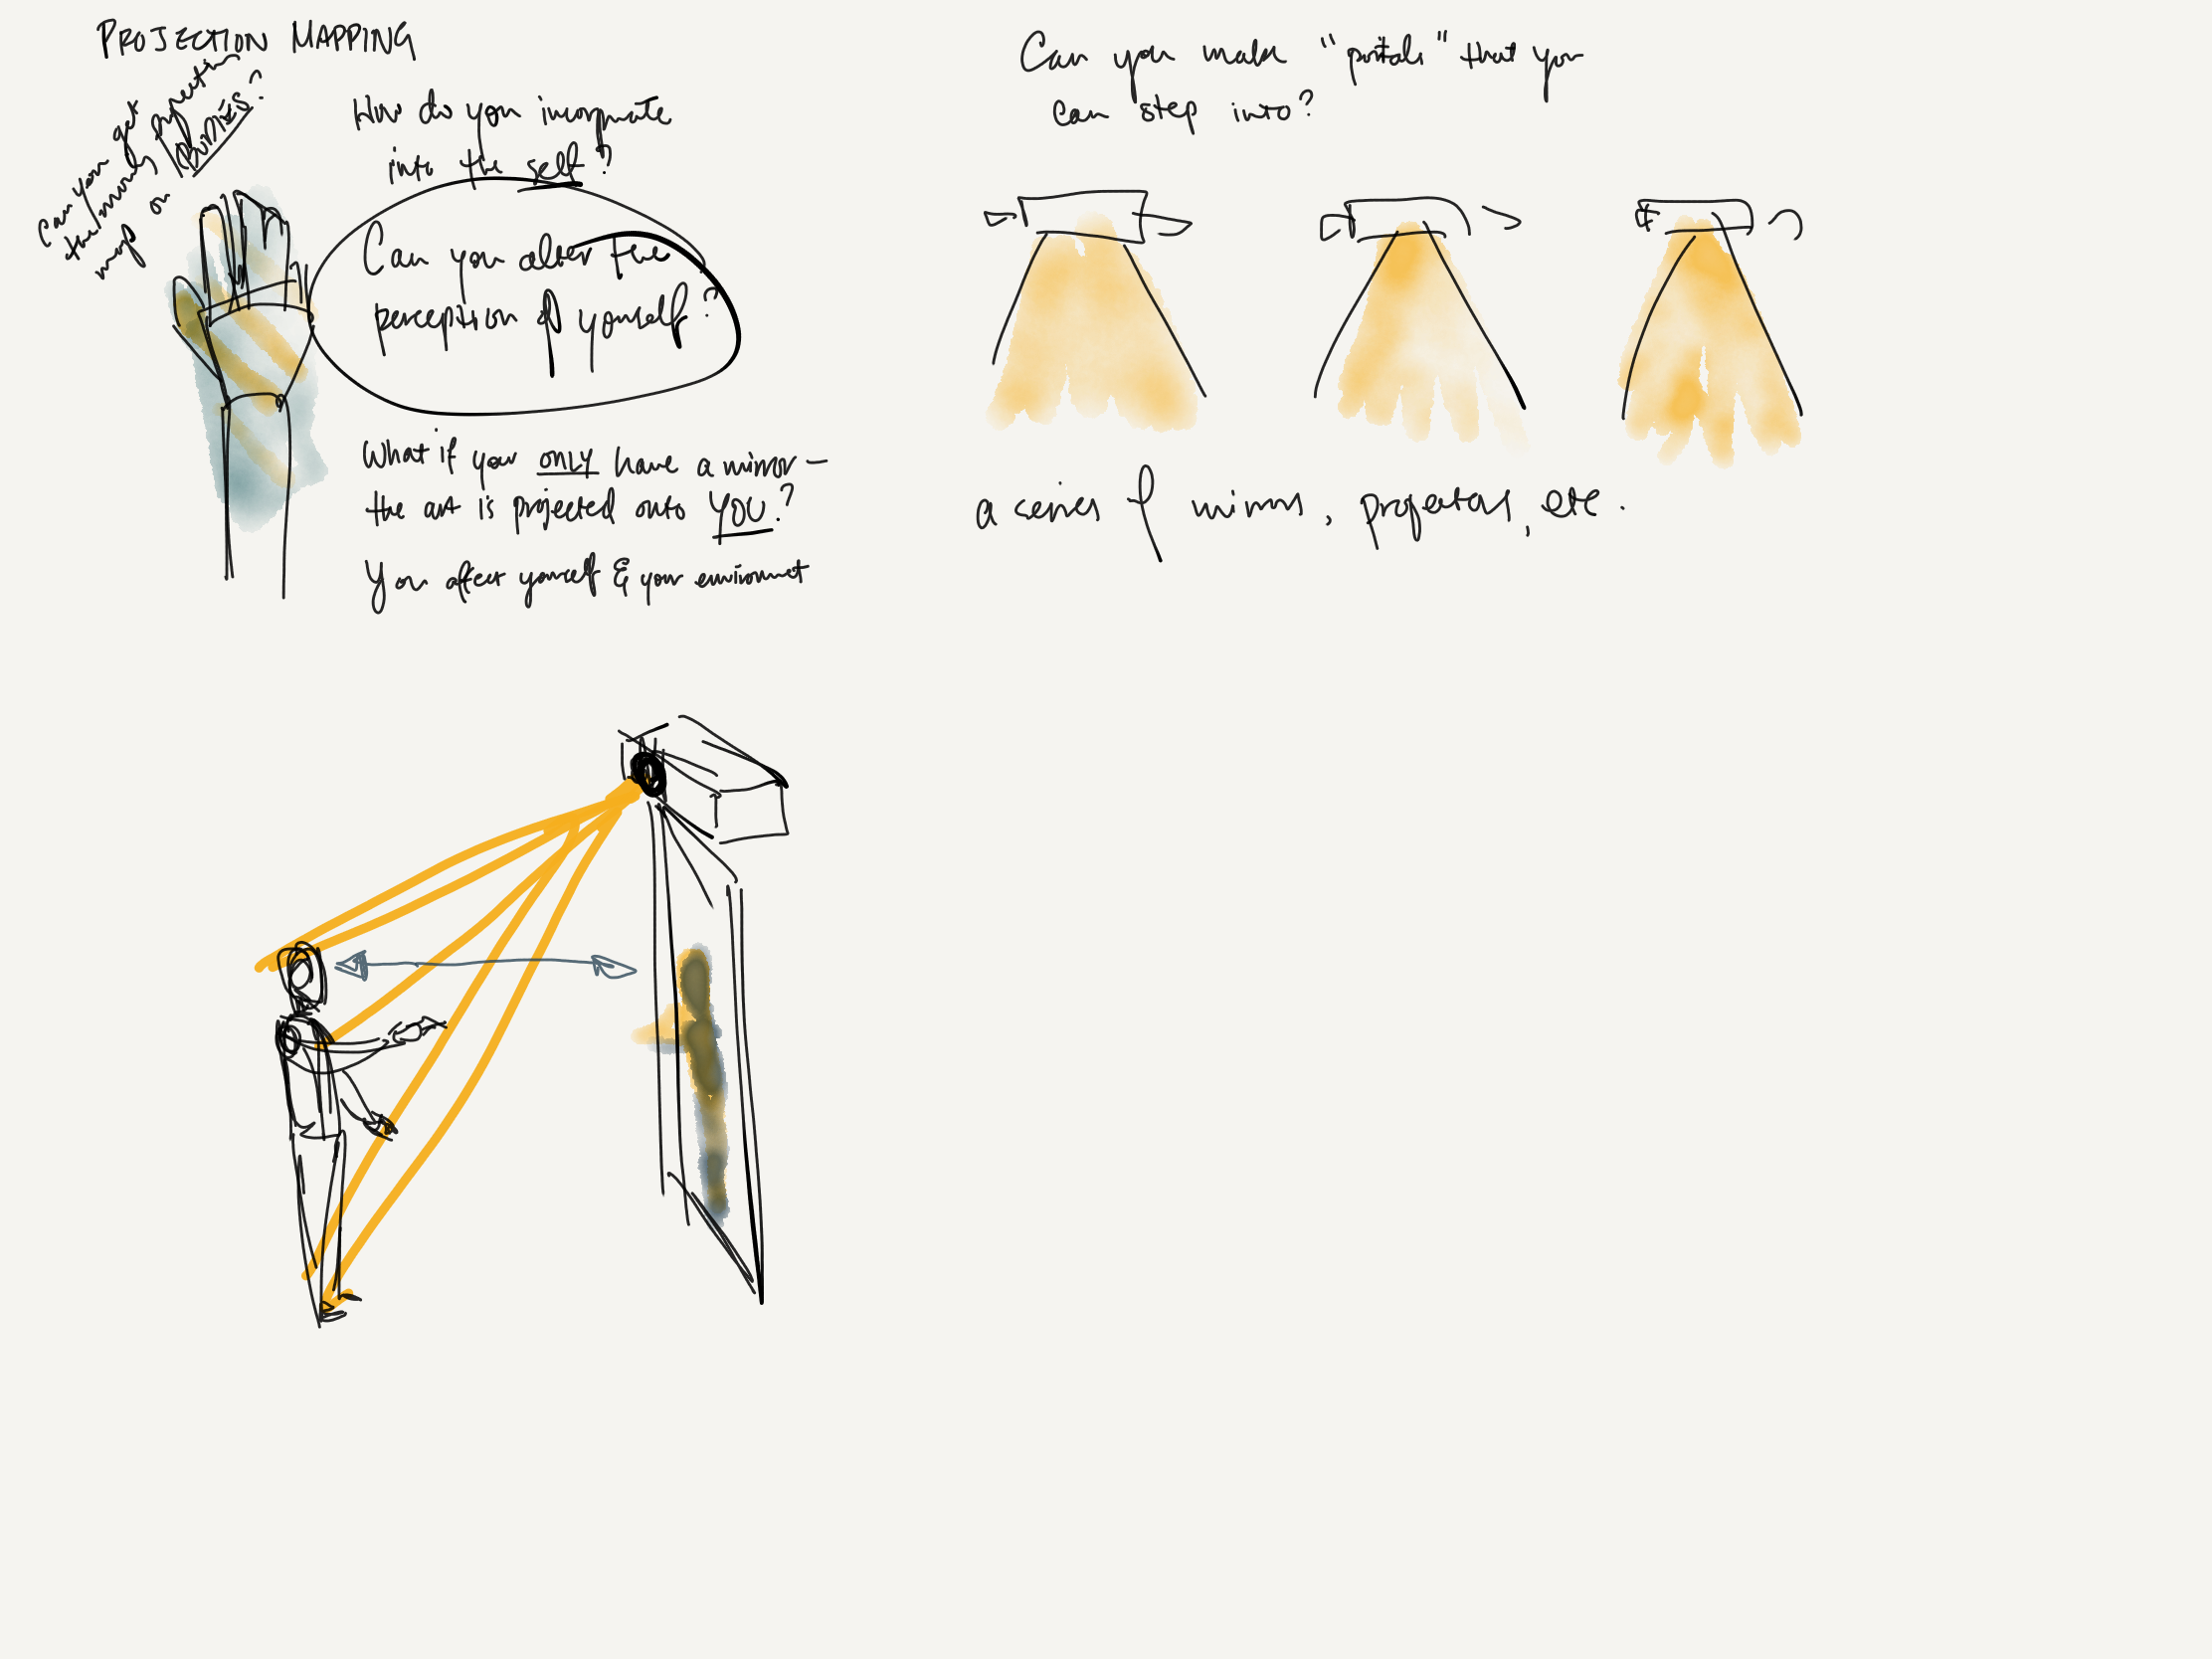 PROJECTION MAPPING
Can you get
the mirrors, projection
map on BODIES?
How do you incorporate
into the self?
Can you alter the
perception of yourself?
What if you only have a mirror –
the art is projected onto YOU?
You affect yourself & your environment
Can you make "portals" that you
can step into?
a series of mirrors, projectors, etc.